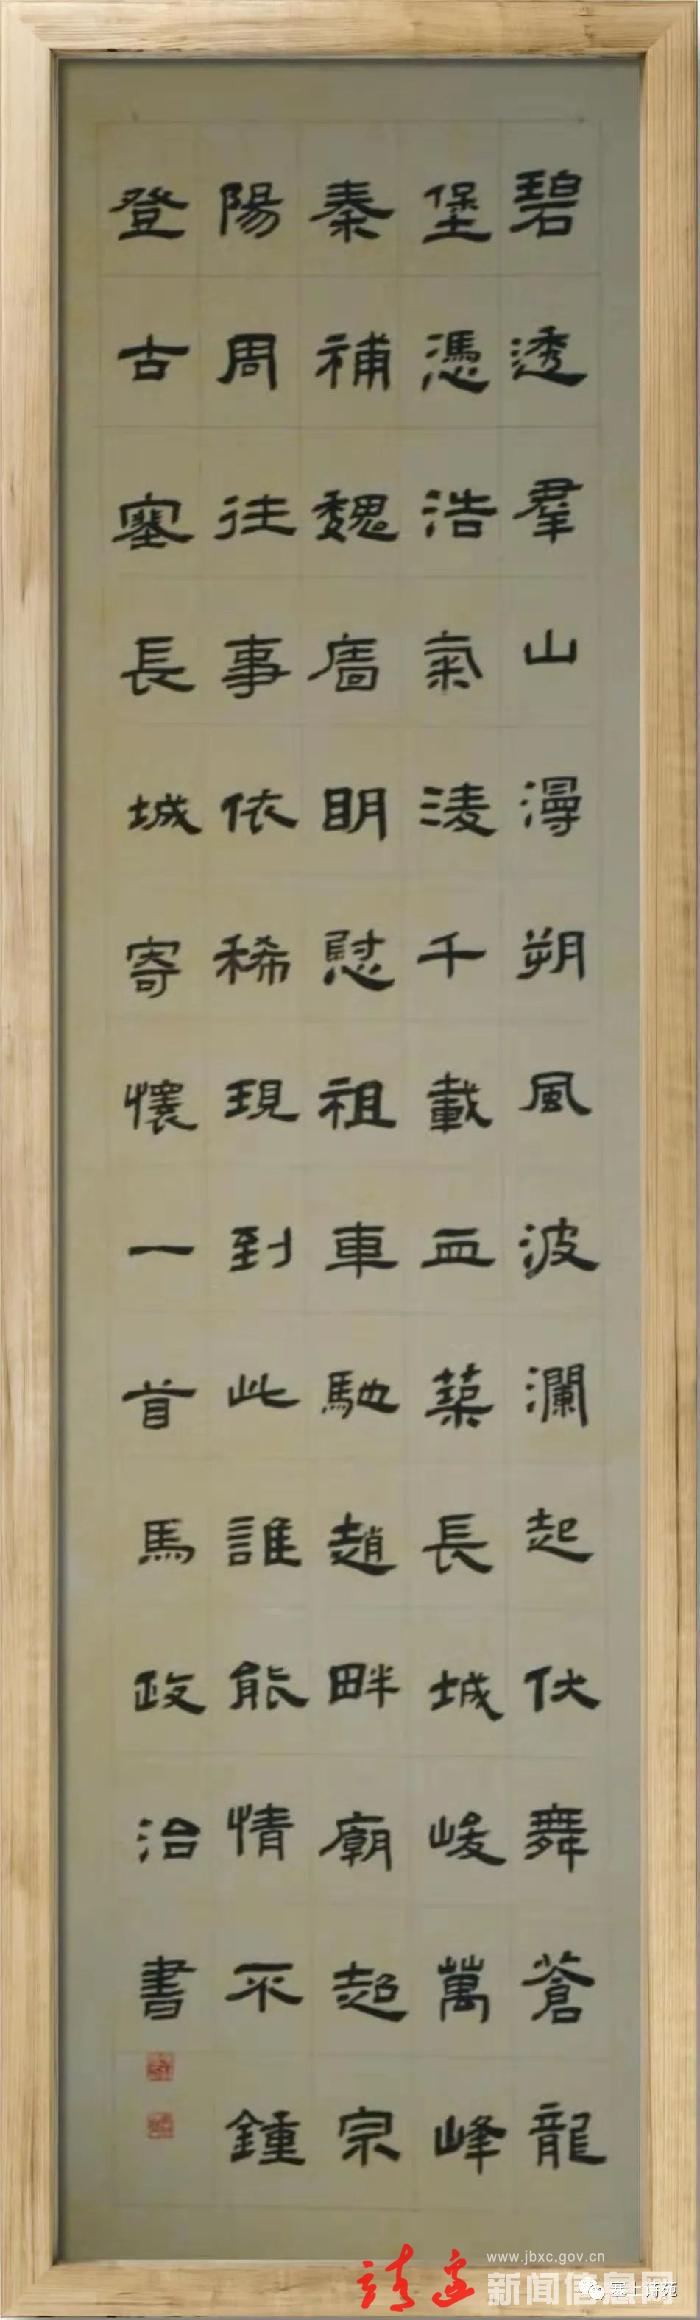 碧透羣山漫朔風波瀾起伏舞蒼龍
堡憑浩氣淩千載血築長城峻萬峰
秦補魏廧明慰祖車馳趙畔廟超宗
陽周往事依稀現到此誰能情不鍾
登古塞長城寄懷一首馬政治書
www.jbxc.gov.cn
靖边新闻信息网
塞上诗苑